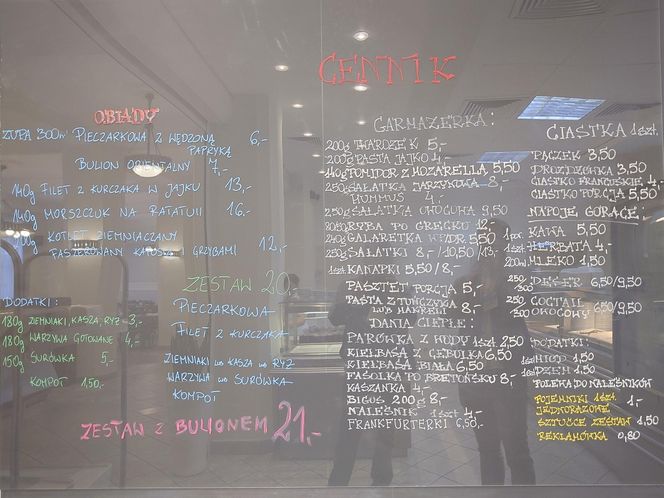 CENNIK
OBIADY
ZUPA 300ml PIECZARKOWA Z WĘDZONĄ PAPRYKĄ 6,-
BULION ORIENTALNY 7,-
140g FILET Z KURCZAKA W JAJKU 13,-
140g MORSZCZUK NA RATATUII 16,-
200g KOTLET ZIEMNIACZANY
PASZEROWANY KAPUSTĄ I GRZYBAMI 12,-
ZESTAW 20,-
PIECZARKOWA
FILET Z KURCZAKA
ZIEMNIAKI lub KASZA lub RYŻ
WARZYWA lub SURÓWKA
KOMPOT
DODATKI:
180g ZIEMNIAKI, KASZA, RYŻ 3,-
180g WARZYWA GOTOWANE 4,-
150g SURÓWKA 5,-
KOMPOT 1,50,-
ZESTAW Z BULIONEM 21,-
GARMAŻERKA:
200g TWAROŻEK 5,-
200g PASTA JAJKO 4,-
140g POMIDOR Z MOZARELLĄ 5,50
250g SAŁATKA JARZYNOWA 8,-
HUMMUS 4,-
250g SAŁATKA OWOCOWA 9,50
RYBA PO GRECKU 12,-
240g GALARETKA WĘDR 5,50
250g SAŁATKI 8,-/10,50/13,-
1szt. KANAPKI 5,50/8,-
PASZTET PORCJA 5,-
PASTA Z TUŃCZYKA
lub MAKRELI 8,-
DANIA CIEPŁE:
PARÓWKA Z WODY 1szt 2,50
KIEŁBASA Z CEBULKĄ 6,50
KIEŁBASA BIAŁA 6,50
FASOLKA PO BRETOŃSKU 8,-
KASZANKA 4,-
BIGOS 200g 8,-
NALEŚNIK 1szt 4,-
FRANKFURTERKI 6,50,-
CIASTKA 1szt.
PĄCZEK 3,50
DROŻDŻÓWKA 3,50
CIASTKO FRANCUSKIE 4,-
CIASTKO PORCJA 5,50
NAPOJE GORĄCE:
KAWA 5,50
1szt HERBATA 4,-
200ml MLEKO 1,50
250/350 DESER 6,50/9,50
250/350 COCTAIL OWOCOWY 6,50/9,50
DODATKI:
1szt MIÓD 1,50
1szt DŻEM 1,50
POLEWA DO NALEŚNIKÓW
POJEMNIKI 1szt. 1,-
JEDNORAZOWE
SZTUĆCE ZESTAW 1,50
REKLAMÓWKA 0,80